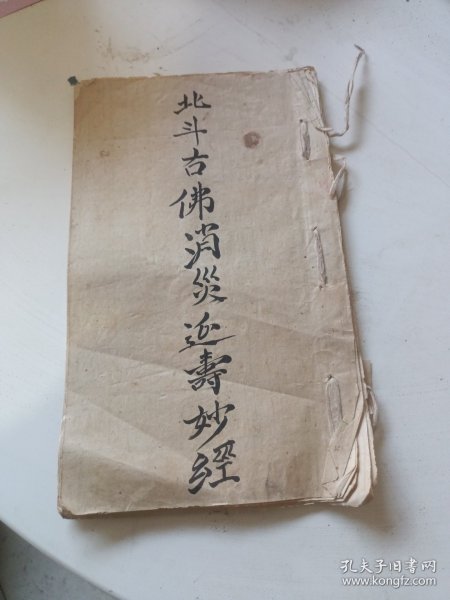 北斗古佛消災延壽妙經
孔夫子旧书网
www.kongfz.com